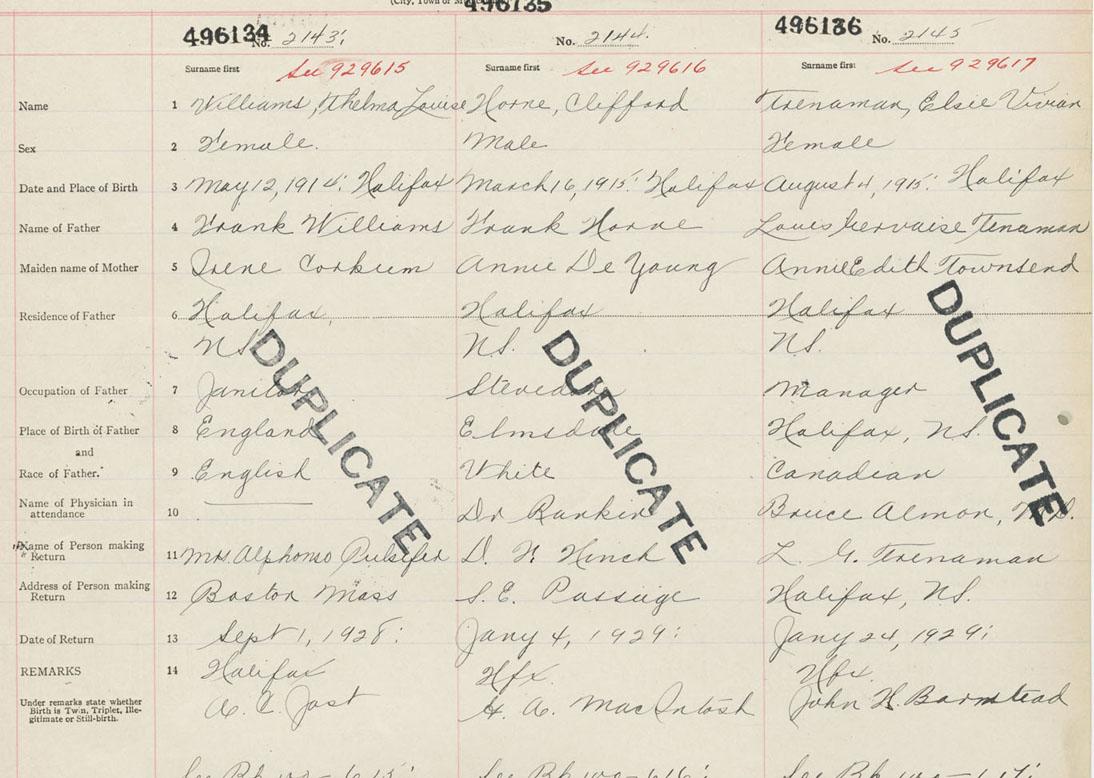 (City, Town or
496135
496134 No. 2143; No. 2144. 496136 No. 2145
Surname first See 929615 Surname first See 929616 Surname first See 929617
Name 1 Williams, Thelma Louise Horne, Clifford Trenaman, Elsie Vivian
Sex 2 Female. Male Female
Date and Place of Birth 3 May 12, 1914; Halifax March 16, 1915; Halifax August 4, 1915; Halifax
Name of Father 4 Frank Williams Frank Horne Louis Gervaise Tenaman
Maiden name of Mother 5 Irene Corkum Annie De Young Annie Edith Townsend
Residence of Father 6 Halifax, Halifax Halifax
NS. NS. NS.
DUPLICATE DUPLICATE DUPLICATE
Occupation of Father 7 Janitor Stevedore Manager
Place of Birth of Father 8 England Elmsdale Halifax, NS.
and
Race of Father. 9 English White Canadian
Name of Physician in
attendance 10 Dr Rankin Bruce Almon, M.D.
Name of Person making
Return 11 Mrs Alphonso Pulsifer D. H. Hinch L. G. Trenaman
Address of Person making
Return 12 Boston Mass S.E. Passage Halifax, NS.
Date of Return 13 Sept 1, 1928; Jany 4, 1929; Jany 24, 1929;
REMARKS 14 Halifax Hfx. Hfx.
Under remarks state whether
Birth is Twin, Triplet, Ille-
gitimate or Still-birth.
A. C. Jost A. A. MacIntosh John H. Barnstead
See Bk See Bk See Bk